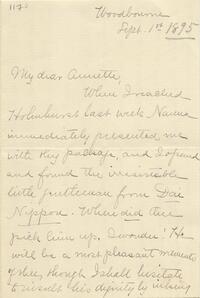 117.
Woodbourne
Sept. 1st 1895
My dear Annette,
When I reached
Holmhurst last week Nanna
immediately presented me
with thy package, and I opened
and found the irresistible
little gentleman from Dai
Nippon. Where did thee
pick him up, I wonder! He
will be a most pleasant memento
of thee, though I shall hesitate
to insult his dignity by